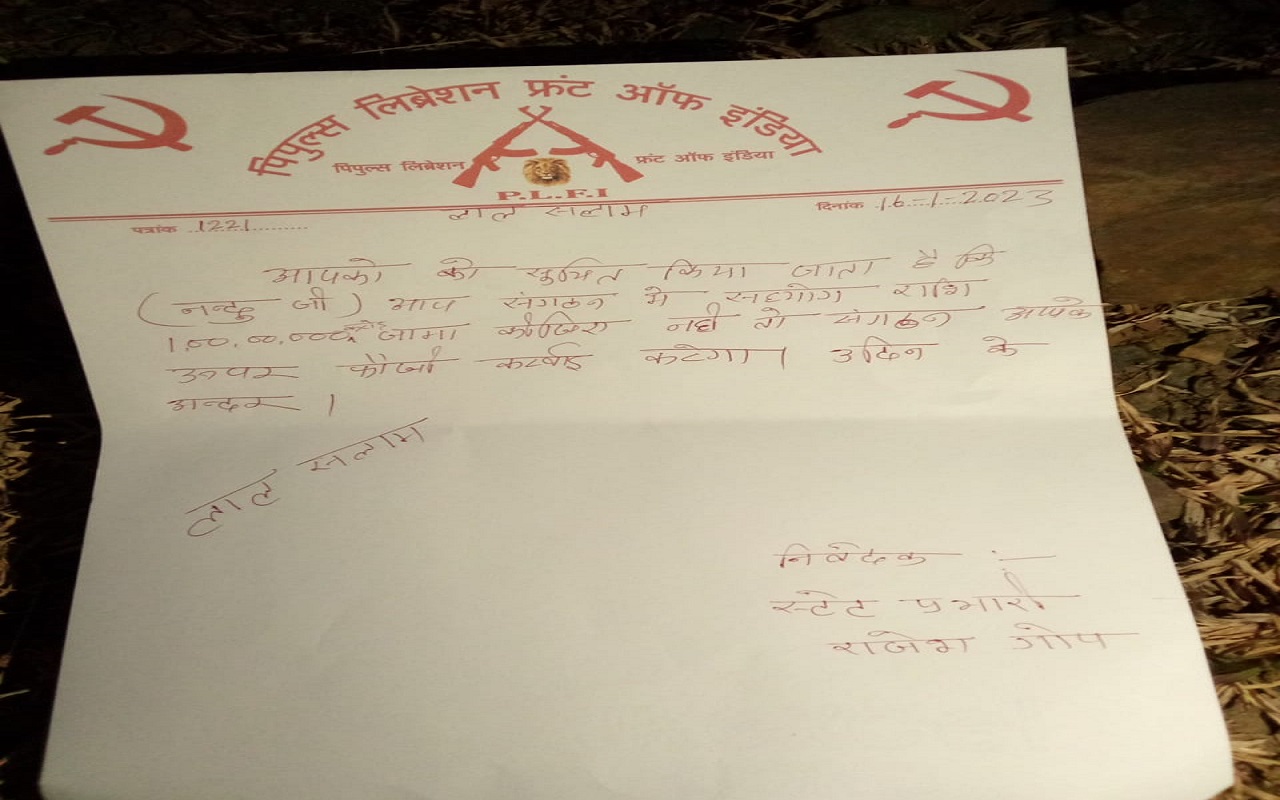 पिपुल्स लिब्रेशन फ्रंट ऑफ इंडिया
पिपुल्स लिब्रेशन फ्रंट ऑफ इंडिया
P.L.F.I
पत्रांक ..1221......... दिनांक .16-1-2023
लाल सलाम
आपको को सुचित किया जाता है कि
(नन्दु जी) आप संगठन मे सहयोग राशि
1,00,00,000 करोड़ जामा किजिए नही तो संगठन आपके
ऊपर फौजी कारवाई करेगा। 3 दिन के
अन्दर ।
लाल सलाम
निवेदक :-
स्टेट प्रभारी
राजेश गोप